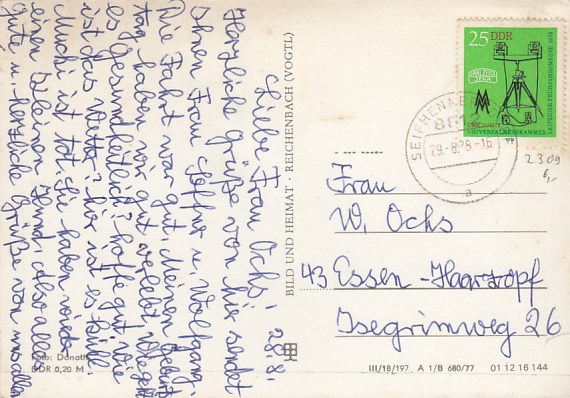 28.8.
Liebe Frau Ochs!
Herzliche Grüße von hier sendet
Ihnen Frau Steffner u. Wolfgang.
Die Fahrt war gut. Meinen Geburts
tag haben wir gut verlebt. Wie geht
es gesundheitlich? hoffe gut wie
ist das Wetter? hier ist es kühl.
Muchi ist tot. Wir haben wieder
einen kleinen Hund. also alles
Gute, herzliche Grüße von uns allen
Foto: Donath
DDR 0,20 M
BILD UND HEIMAT · REICHENBACH (VOGTL)
25 DDR
CARL ZEISS
JENA
UNIVERSALMESSKAMMER
LEIPZIGER FRÜHJAHRSMESSE 1978
SEIFHENNERSDORF
29.-8.78-16
a
2309
Frau
W. Ochs
43 Essen-Haarzopf
Isegrimweg 26
III/18/197 A 1/B 680/77 01 12 16 144